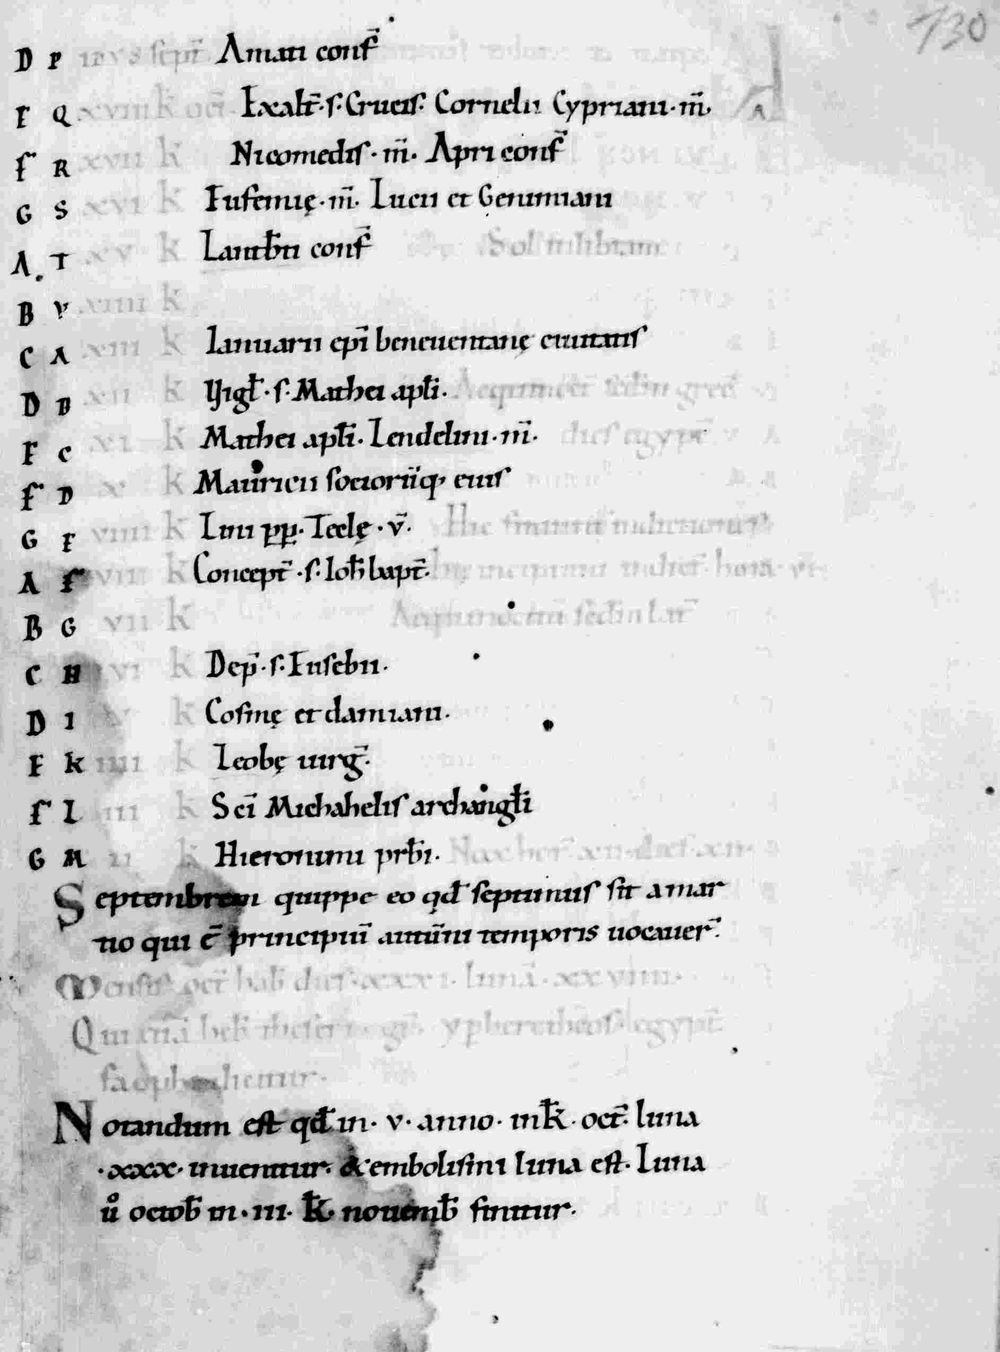 730
D P idus sept̄ Amati conf̄
E Q xviiii k oct̄ Exalt̄·s·Crucis· Cornelii Cypriani·m̄·
F R xvii k Nicomedis·m̄· Apri conf̄
G S xvi k Eufemię·m̄· Lucii et Geminiani
A T xv k Lantb̄ti conf̄ Sol in libram
B V xiiii k
C A xiii k Ianuarii ep̄i beneuentanę ciuitatis
D B xii k Vigł·s·Mathei apłi· Aequinoct̄ secdm grec̄
E C xi k Mathei apłi· Lendelini·m̄· dies egypt̄
F D x k Mauricii socioru̅q; eius
G E viiii k Lini pp· Teclę·v̄·
A F viii k Concept̄·s·Ioh̄ bapt̄·
B G vii k Aequinoctiū secdm lat̄
C H vi k Dep̄·s·Eusebii·
D I v k Cosmę et damiani·
E K iiii k Leobę uirḡ·
F L iii k Sc̄i Michahelis archangłi
G M ii k Hieronimi prb̄i· Nox hor̄ xii· dies xii·
Septembrem quippe eo qđ septimus sit a mar
tio qui ē principiū autūni temporis uocauer̄·
Mensis oct̄ hab̄ dies·xxxi· lunā·xxviiii·
Notandum est qđ in·v·anno·in k̄·oct̄·luna
·xxx·inuenitur·& embolismi luna est·Luna
ů octob̄ in·iii·k̄ nouemb̄ finitur·